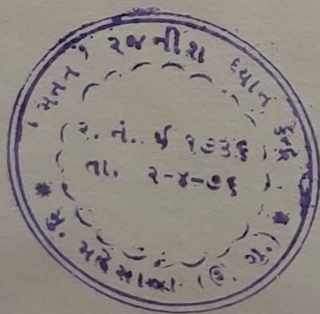 'મનન' રજનીશ ધ્યાન કેન્દ્ર
(ર. નં. ઈ ૧૭૩૬)
તા. ૨-૪-૭૬
* મુ. મહેસાણા (ઉ. ગુ.) *